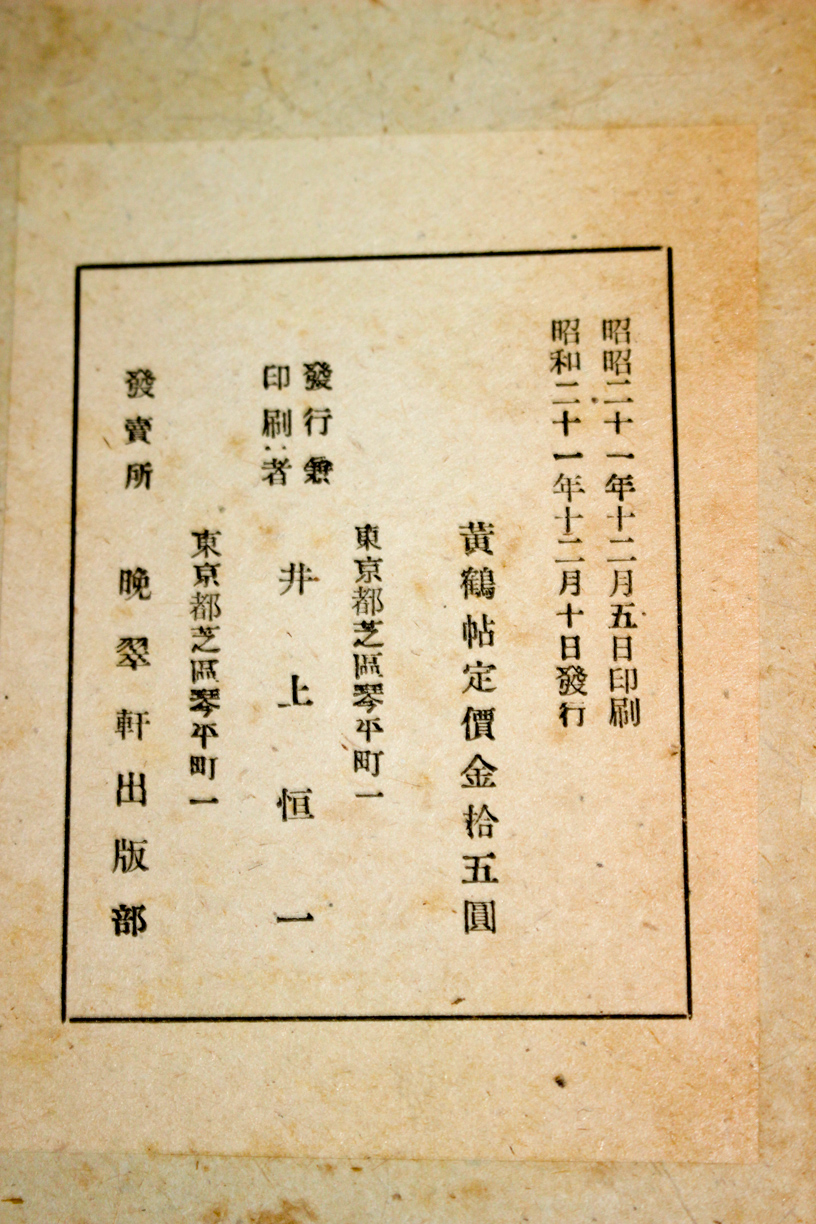 昭昭二十一年十二月五日印刷
昭和二十一年十二月十日發行
黃鶴帖定價金拾五圓
東京都芝區琴平町一
發行兼
印刷者
井上恒一
東京都芝區琴平町一
發賣所 晩翠軒出版部